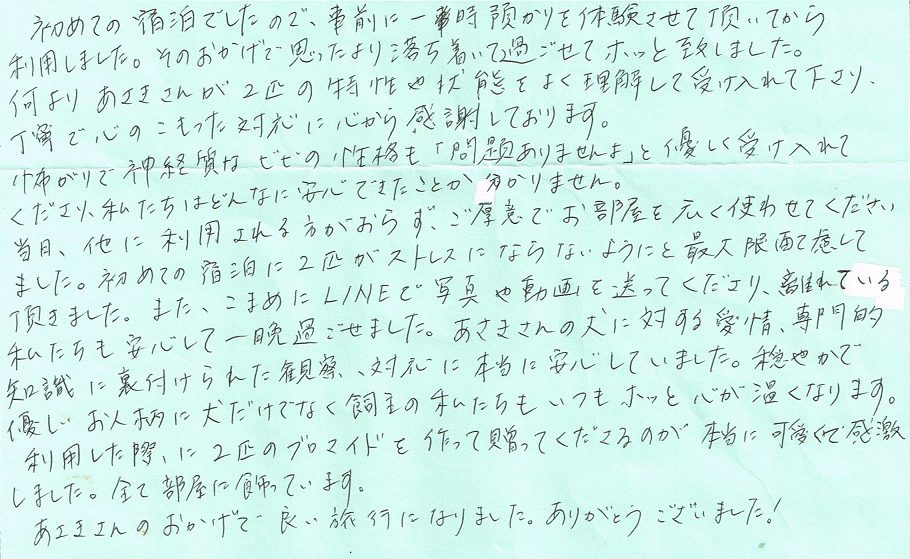 初めての宿泊でしたので、事前に一時預かりを体験させて頂いてから
利用しました。そのおかげで思ったより落ち着いて過ごせてホッと致しました。
何よりあさきさんが2匹の特性や状態をよく理解して受け入れて下さり、
丁寧で心のこもった対応に心から感謝しております。
怖がりで神経質なビビの性格も「問題ありませんよ」と優しく受け入れて
くださり、私たちはどんなに安心できたことか分かりません。
当日、他に利用される方がおらず、ご厚意でお部屋を広く使わせてください
ました。初めての宿泊に2匹がストレスにならないようにと最大限配慮して
頂きました。また、こまめにLINEで写真や動画を送ってくださり、離れている
私たちも安心して一晩過ごせました。あさきさんの犬に対する愛情、専門的
知識に裏付けられた観察、対応に本当に安心していました。穏やかで
優しいお人柄に犬だけでなく飼主の私たちもいつもホッと心が温くなります。
利用した際、に2匹のブロマイドを作って贈ってくださるのが本当に可愛くて感激
しました。全て部屋に飾っています。
あさきさんのおかげで良い旅行になりました。ありがとうございました!